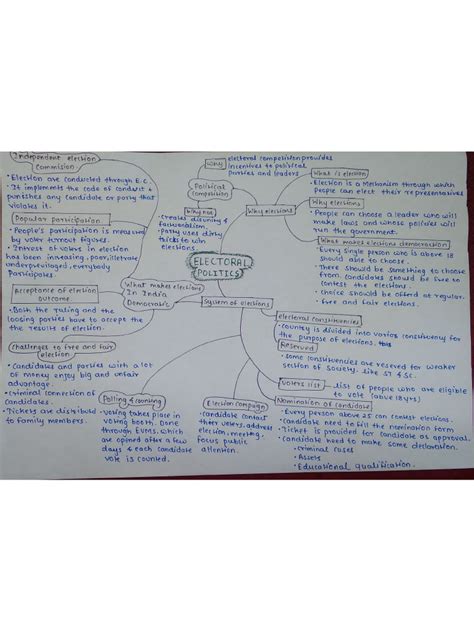 ELECTORAL
POLITICS
Independent election
Commision.
• Election are conducted through E.C.
• It implements the code of conduct &
punishes any candidate or party that
violates it.
Popular participation
• People's participation is measured
by voter turnout figures.
• Intrest of voters in election
has been increasing, poor, illetrate
and underprevilaged, everybody
participates.
Acceptance of election
outcome.
• Both the ruling and the
loosing parties have to accept the
the result of election.
Challenges to free and fair
election
• Candidates and parties with a lot
of money enjoy big and unfair
advantage.
• Criminal connection of
Candidates.
• Tickets are distributed
to family members.
What makes elections
In India
Democratic
Political
Competition
Why
electoral competition provides
incentives to political
parties and leaders
Why not
• Creates disuning &
factionalism.
• Party uses dirty
tricks to win
elections
Why elections
What is election
• Election is a Mechanism through which
people can elect their representatives
Why elections
• People can choose a leader who will
make laws and whose policies will
run the government.
What makes elections democration
• Every single person who is above 18
should able to choose.
• There should be something to choose
from candidates should be free to
contest the elections.
• choice should be offered at regular.
• free and fair elections.
System of elections
electoral constituencies
• Country is divided into various constituency for
the purpose of elections.
Reserved
• Some constituencies are reserved for weaker
section of society. Like ST & SC.
Voters list
List of people who are eligible
to vote (above 18 yrs)
Nomination of candidate
• Every person above 25 can contest elections.
• Candidate need to fill the nomination form
• Ticket is provided for candidate as approval.
• Candidate need to make some decleration.
• Criminal cases
• Assets
• Educational qualification.
Election Campaign
• Candidate contact
their voters, address
election, meeting,
focus public
attention.
Polling & counting
• Voting takes place in
voting booth. Done
through EVMs. which
are opened after a few
days & each candidate
vote is counted.